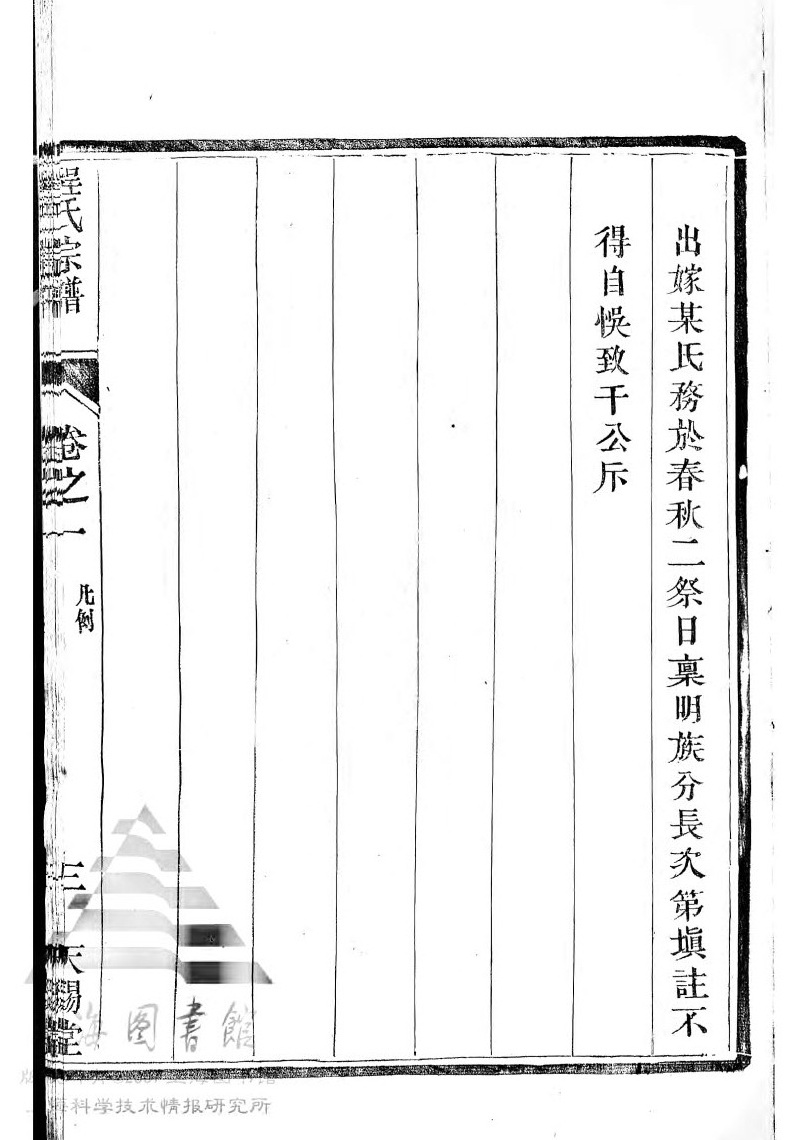 出嫁某氏務於春秋二祭日稟明族分長次第塡註不
得自悞致干公斥
程氏宗譜
卷之一
凡例
三
天錫堂
海图書館
海科学技术情报研究所